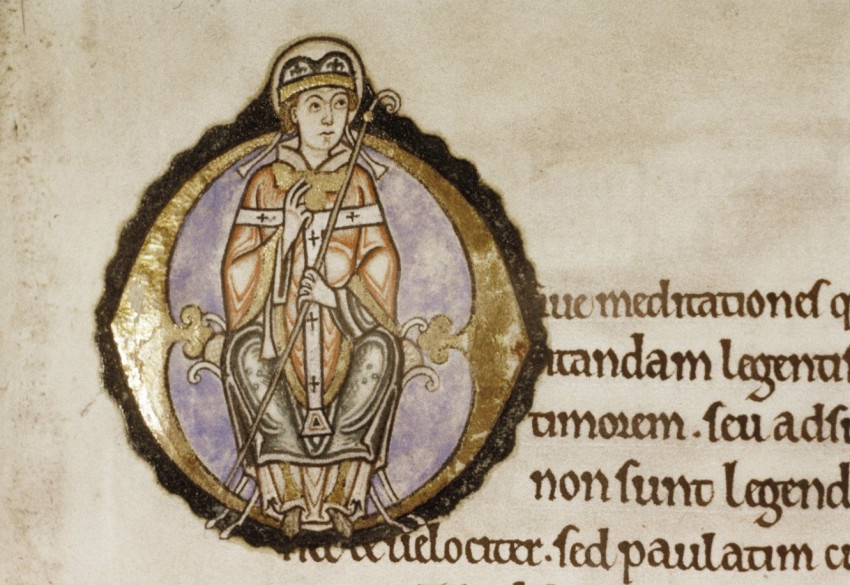 meditationeſ q
legentiſ
timorem. ſeu adſi
non ſunt legend
uelociter. ſed paulatim cu